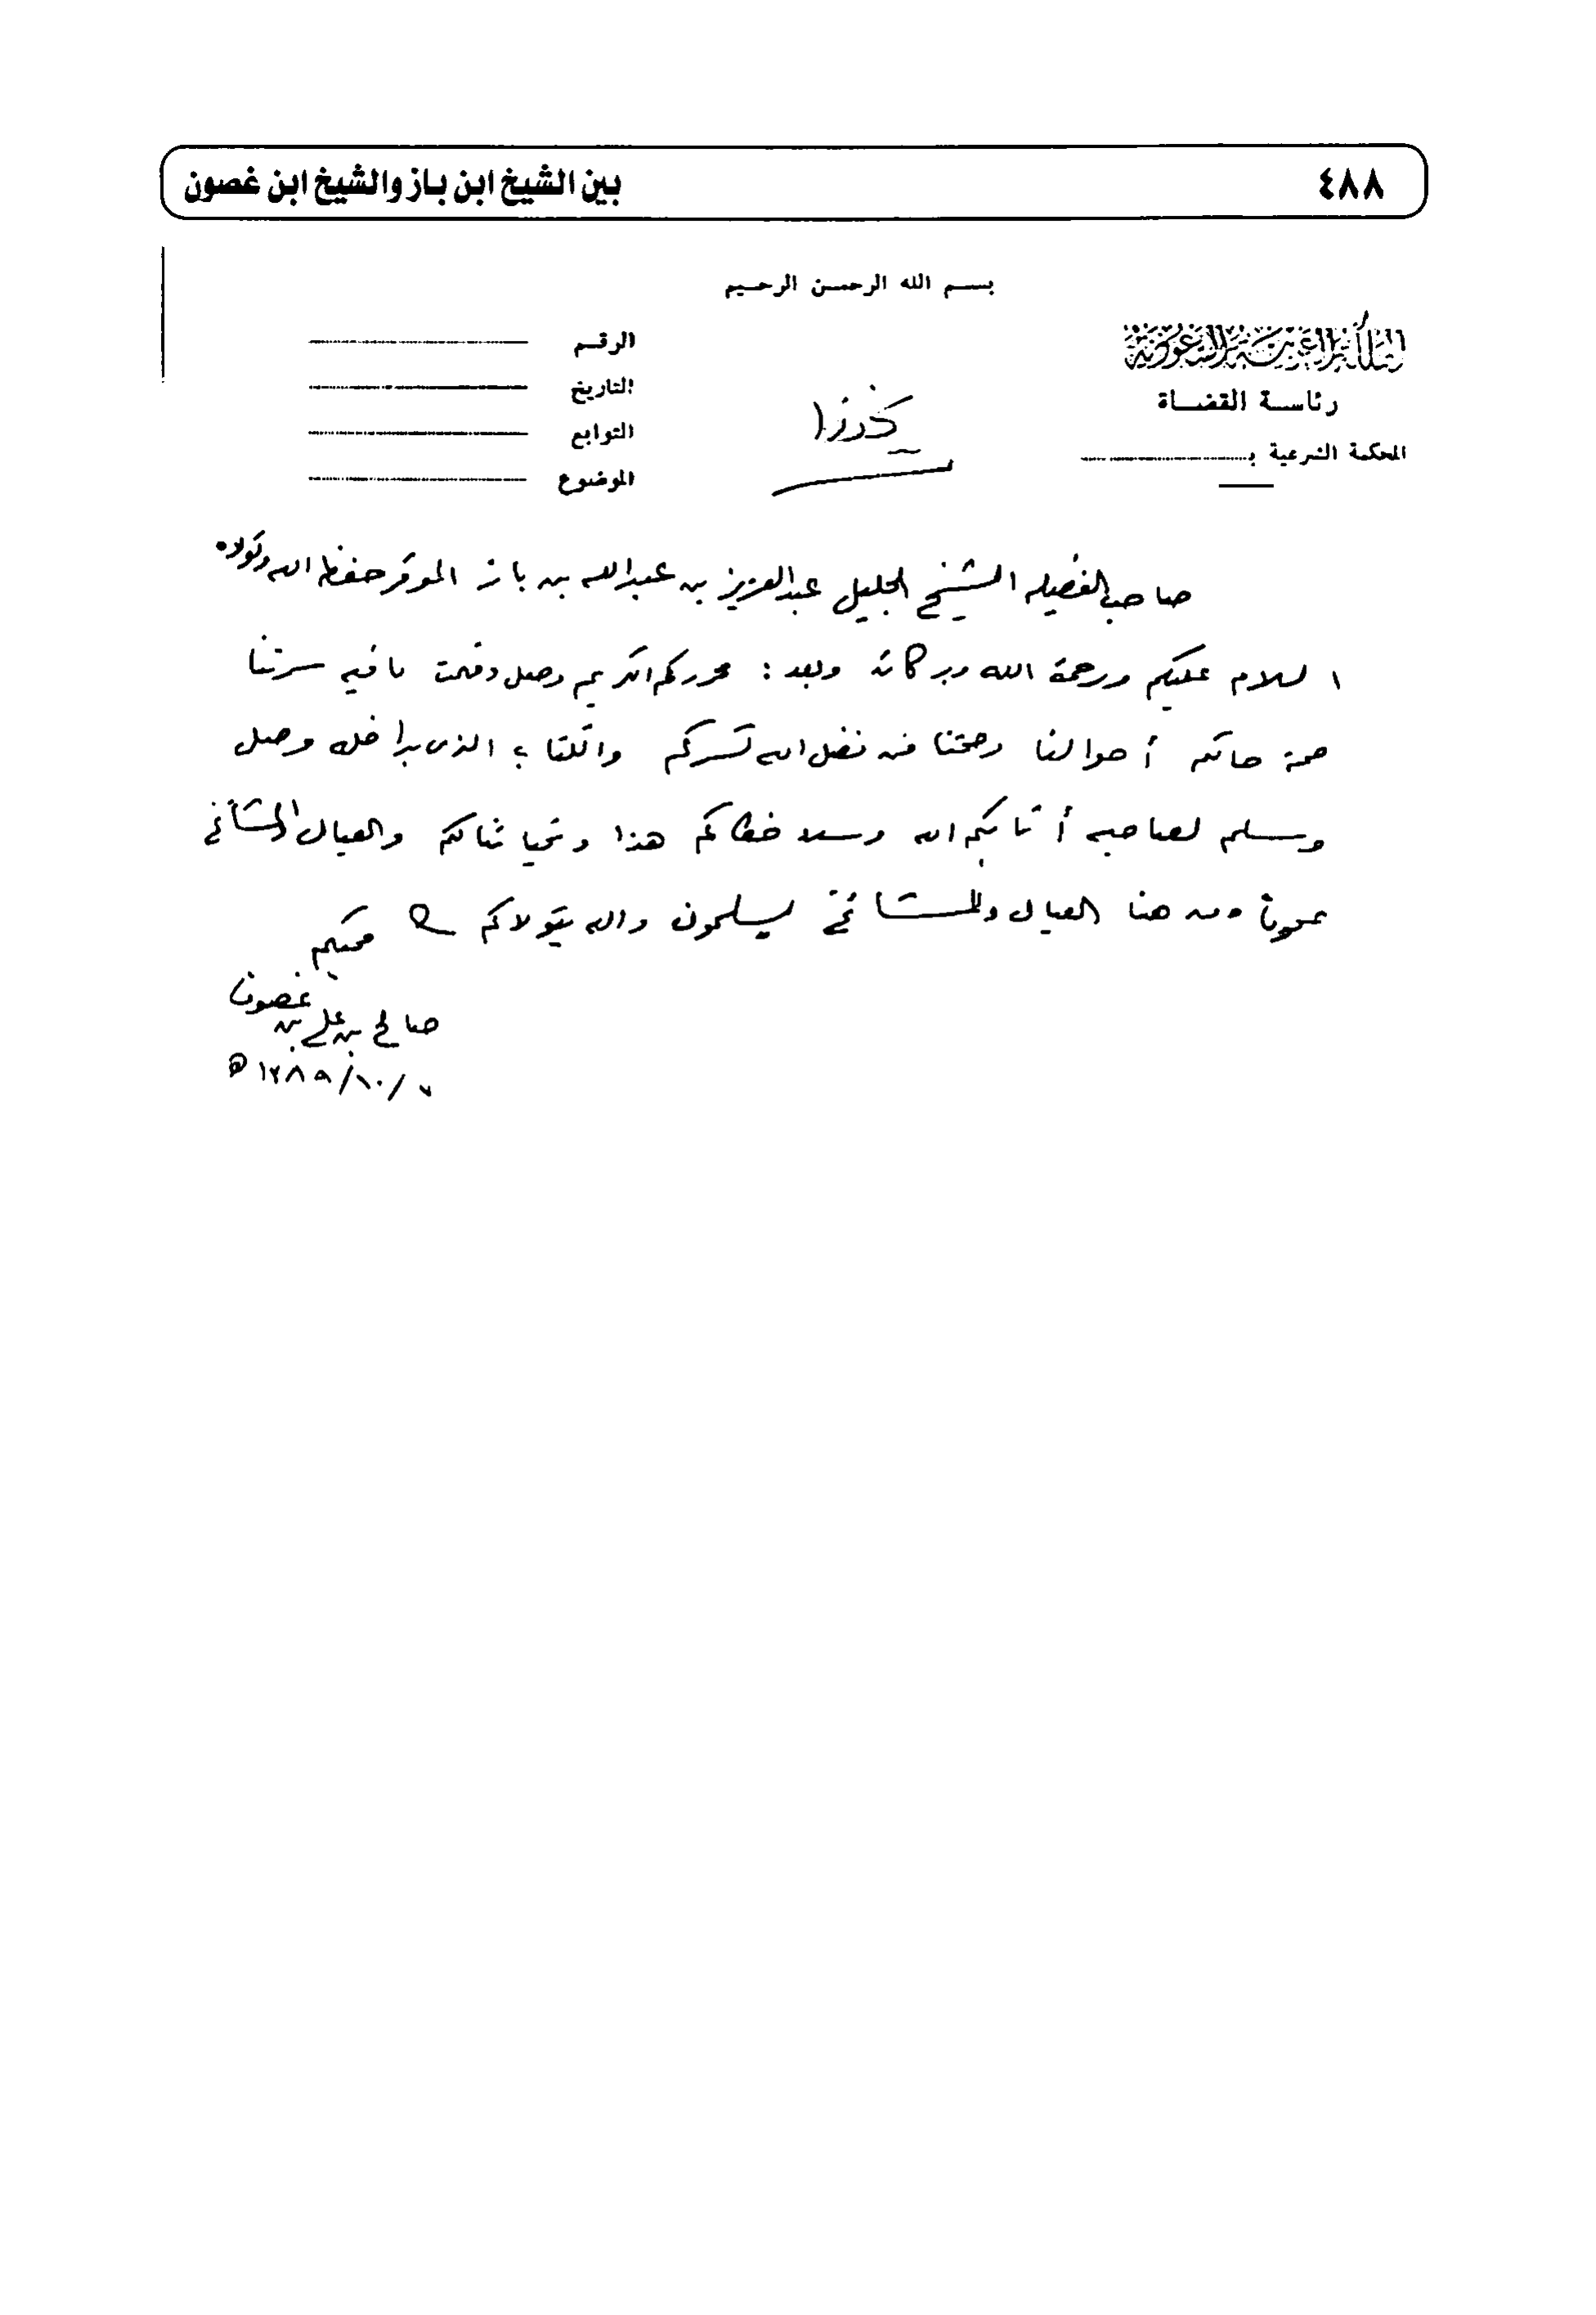 ٤٨٨
بين الشيخ ابن باز والشيخ ابن غصون
بسم الله الرحمن الرحيم
المملكة العربية السعودية
رئاسة القضاة
المحكمة الشرعية بـ
الرقم
التاريخ
التوابع
الموضوع
صاحب الفضيلة الشيخ الجليل عبدالعزيز بن عبدالله بن باز الموقر حفظه الله وتولاه
السلام عليكم ورحمة الله وبركاته وبعد: محرركم الكريم وصل وفهمت ما فيه سرتنا
صحة حالكم أحوالنا وصحتنا من فضل الله تسركم والكتاب الذي بداخله وصل
وسلم لصاحبه أثابكم الله وسدد خطاكم هذا وتحياتنا لكم والعيال والمشائخ
عموما ومن هنا العيال والمشائخ يسلمون والله يتولاكم محبكم
صالح بن علي بن غصون
٧/١٠/١٣٨٩ هـ